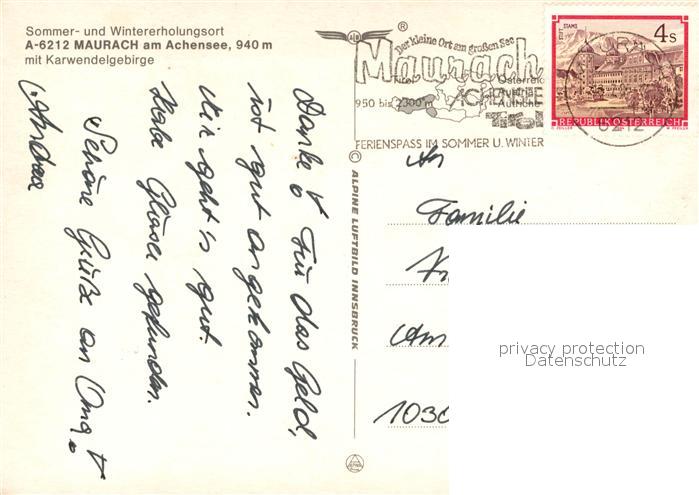 Sommer- und Wintererholungsort
A-6212 MAURACH am Achensee, 940 m
mit Karwendelgebirge
Danke! Für das Geld,
ist gut angekommen.
Mir geht's gut.
Habe Gläser gefunden.
Schöne Grüße an Oma!
Andrea
© ALPINE LUFTBILD INNSBRUCK
®
Der kleine Ort am großen See
Maurach
Tirol Österreich
Austria
950 bis 2300 m ACHENSEE Autriche
Tirol
FERIENSPASS IM SOMMER U. WINTER
STIFT STAMS
4 S
REPUBLIK ÖSTERREICH
6212
An
Familie
Am
1030
privacy protection
Datenschutz